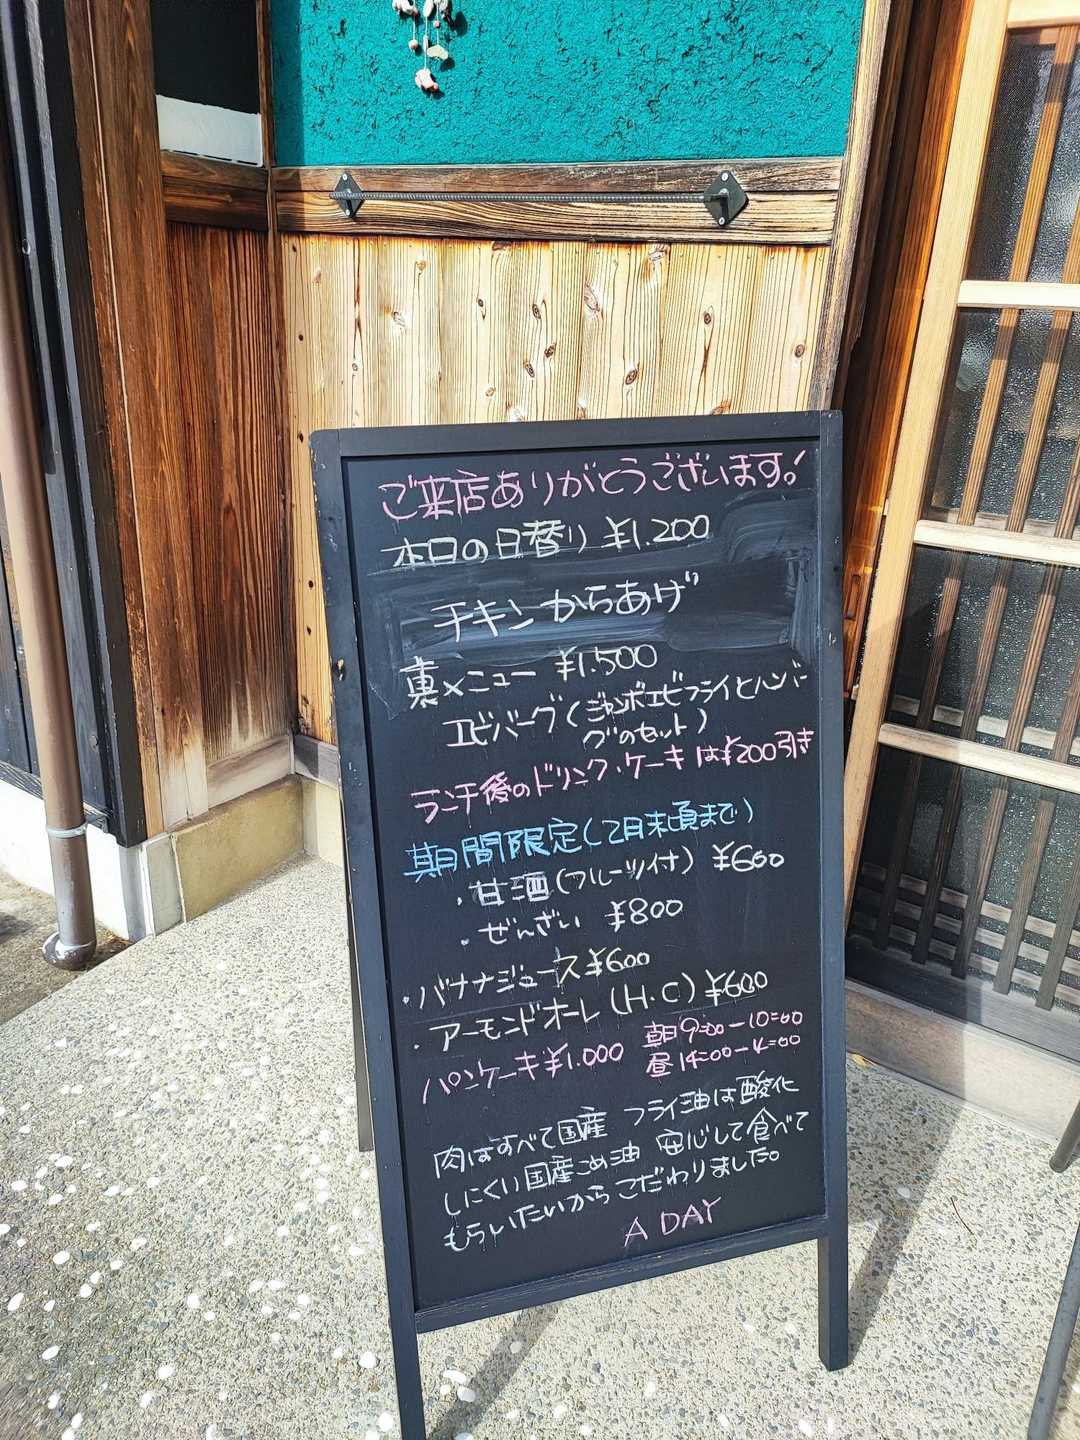 ご来店ありがとうございます!
本日の日替り ¥1.200
チキンからあげ
裏メニュー ¥1.500
エビバーグ(ジャンボエビフライとハンバー
グのセット)
ランチ後のドリンク・ケーキは¥200引き
期間限定(2月末頃まで)
・甘酒(フルーツ付) ¥600
・ぜんざい ¥800
・バナナジュース ¥600
・アーモンドオーレ(H・C) ¥600
パンケーキ¥1.000 朝9:00-10:00
昼14:00-4:00
肉はすべて国産 フライ油は酸化
しにくい国産こめ油 安心して食べて
もらいたいからこだわりました。
A DAY